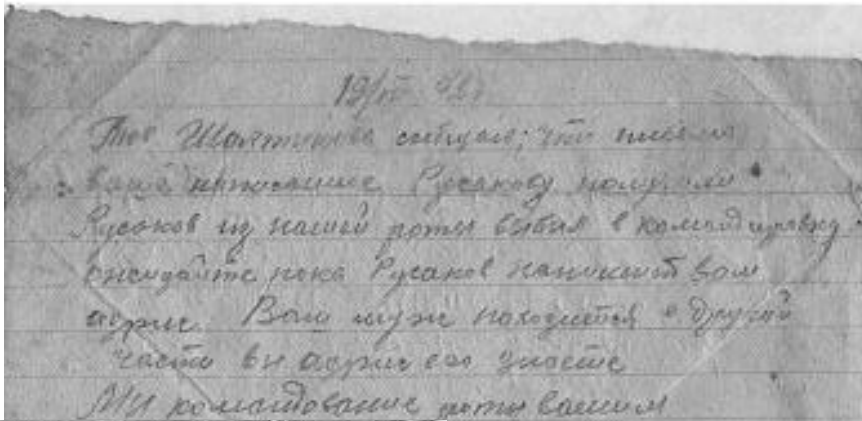 19/IV 42г
Тов Шаятнова сообщаю, что письмо
ваше написанное Русакову получили
Русаков из нашей роты выбыл в командировку
ожидайте пока Русаков напишет вам
адрес. Ваш муж находится в другой
части вы адрес его знаете
Мы командование роты вашим